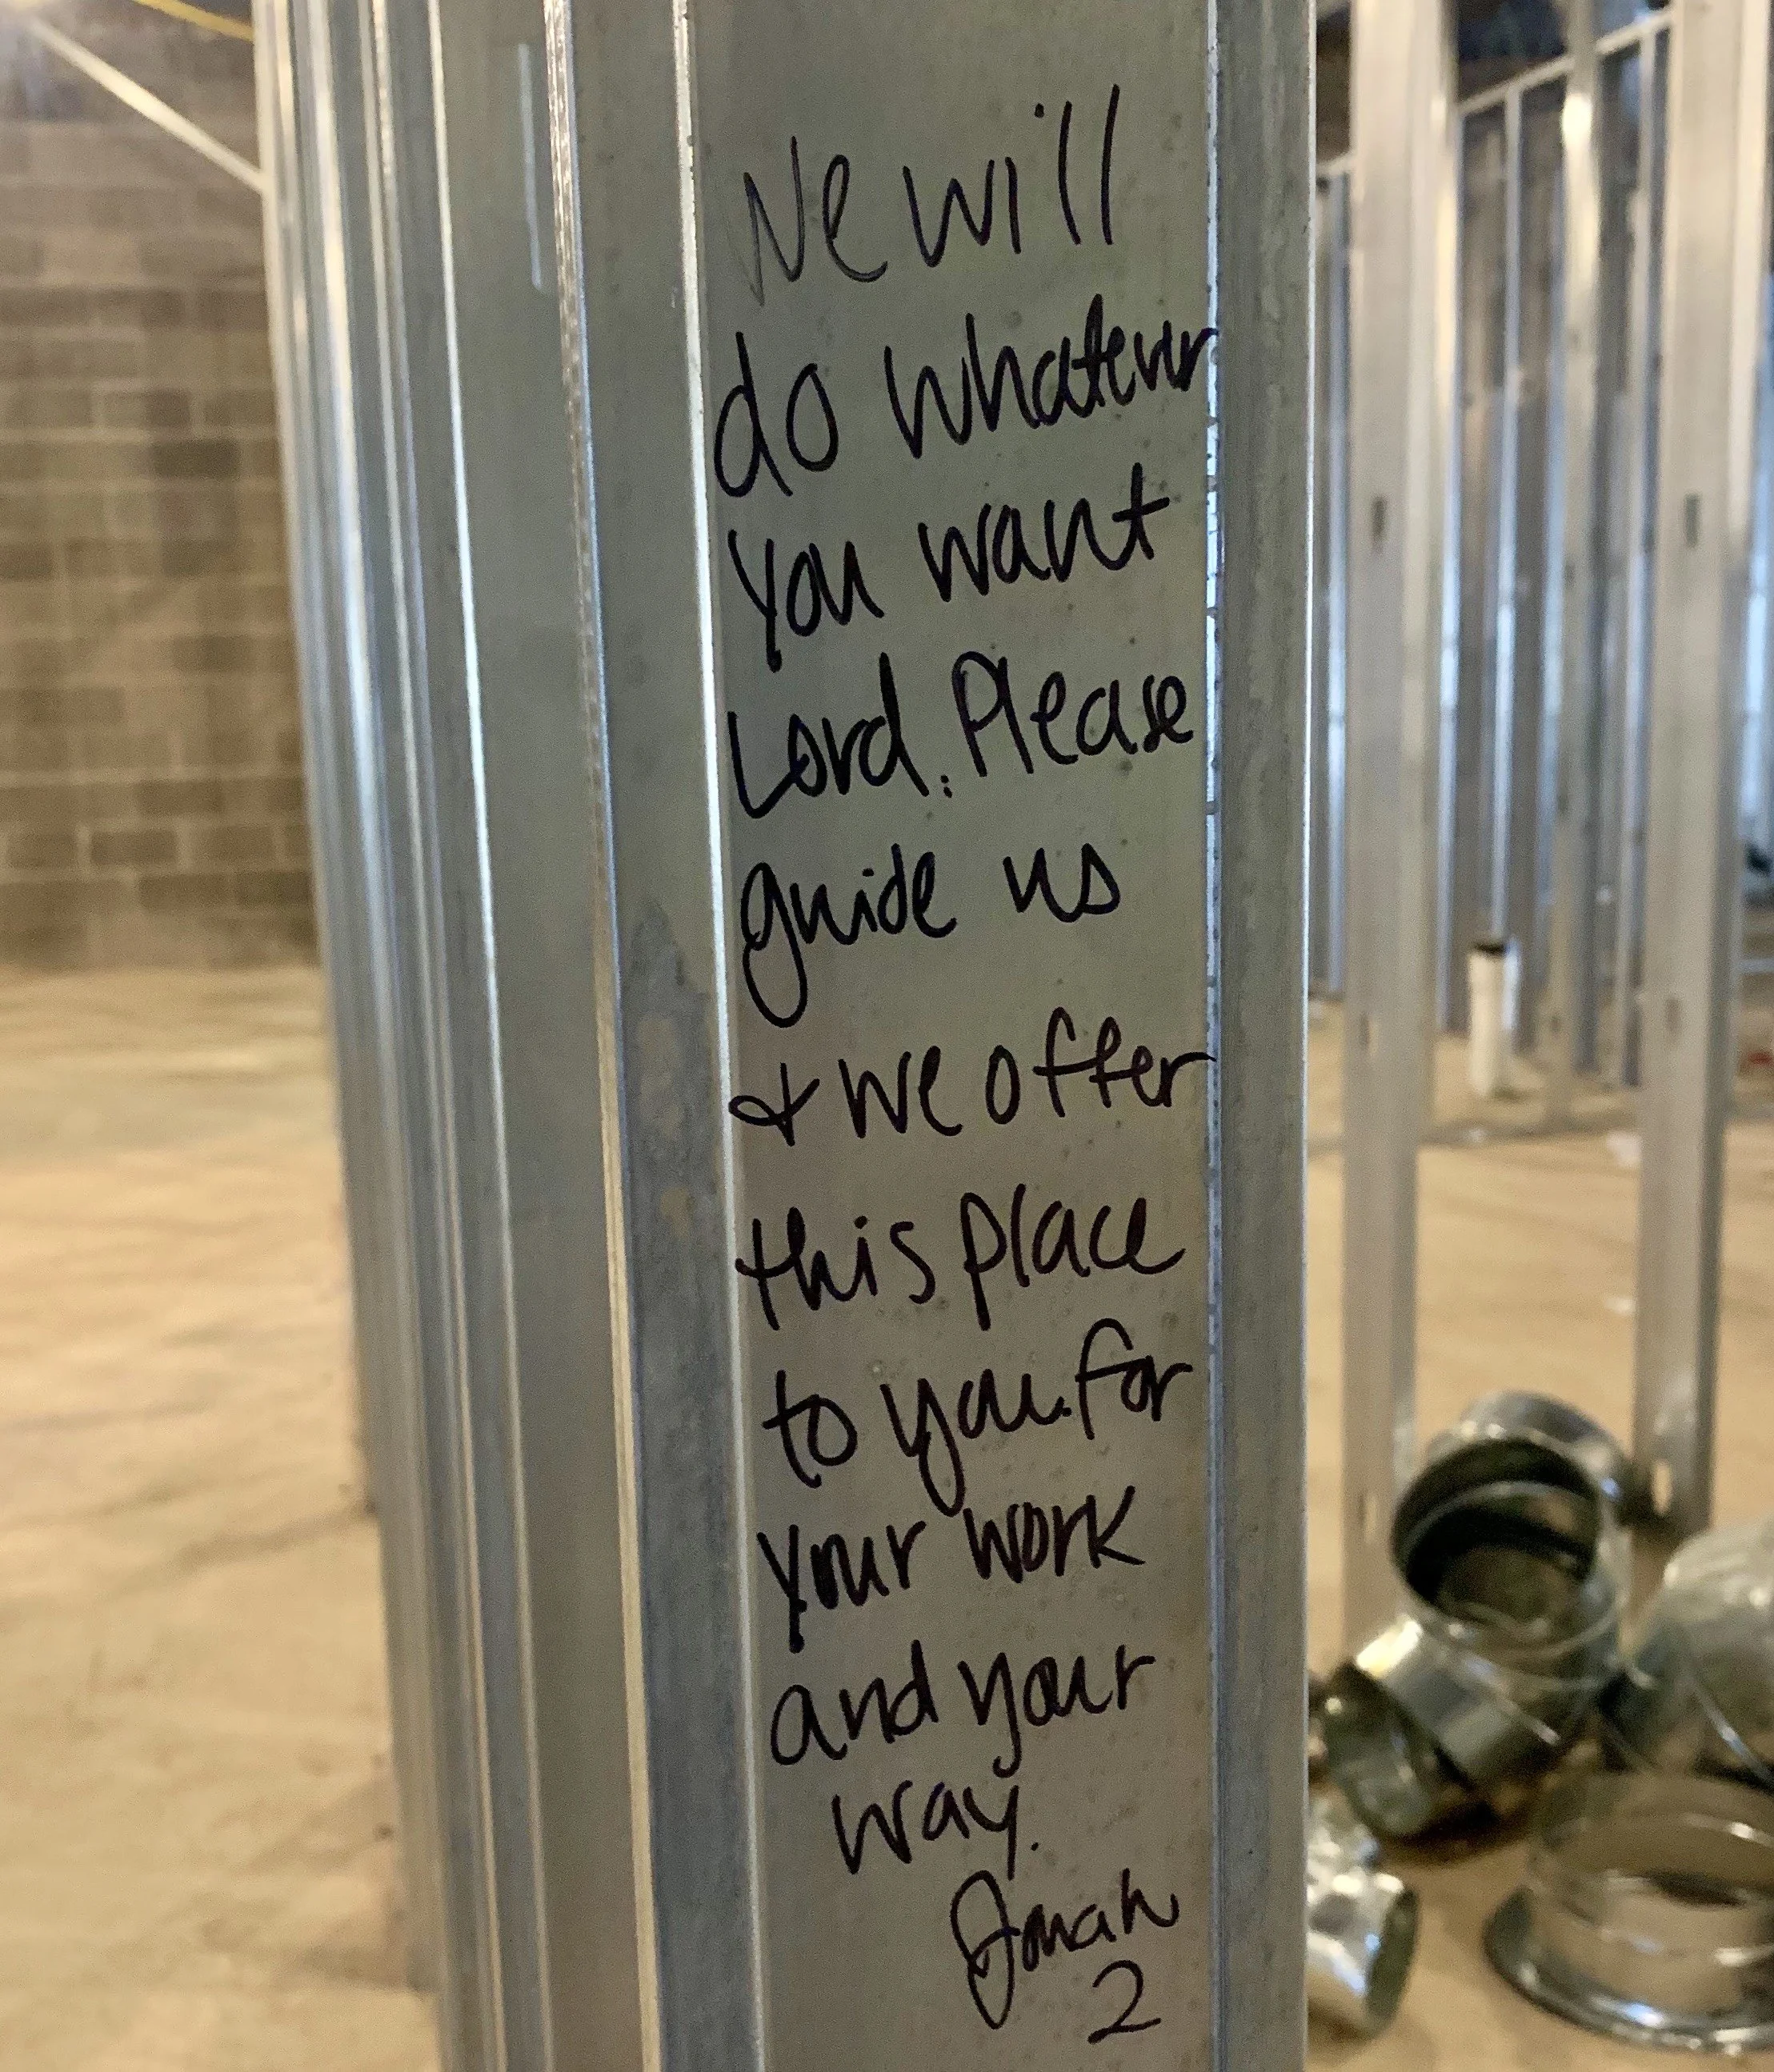 We will
do whatever
you want
Lord. Please
guide us
& we offer
this place
to you for
your work
and your
way.
Jonah
2